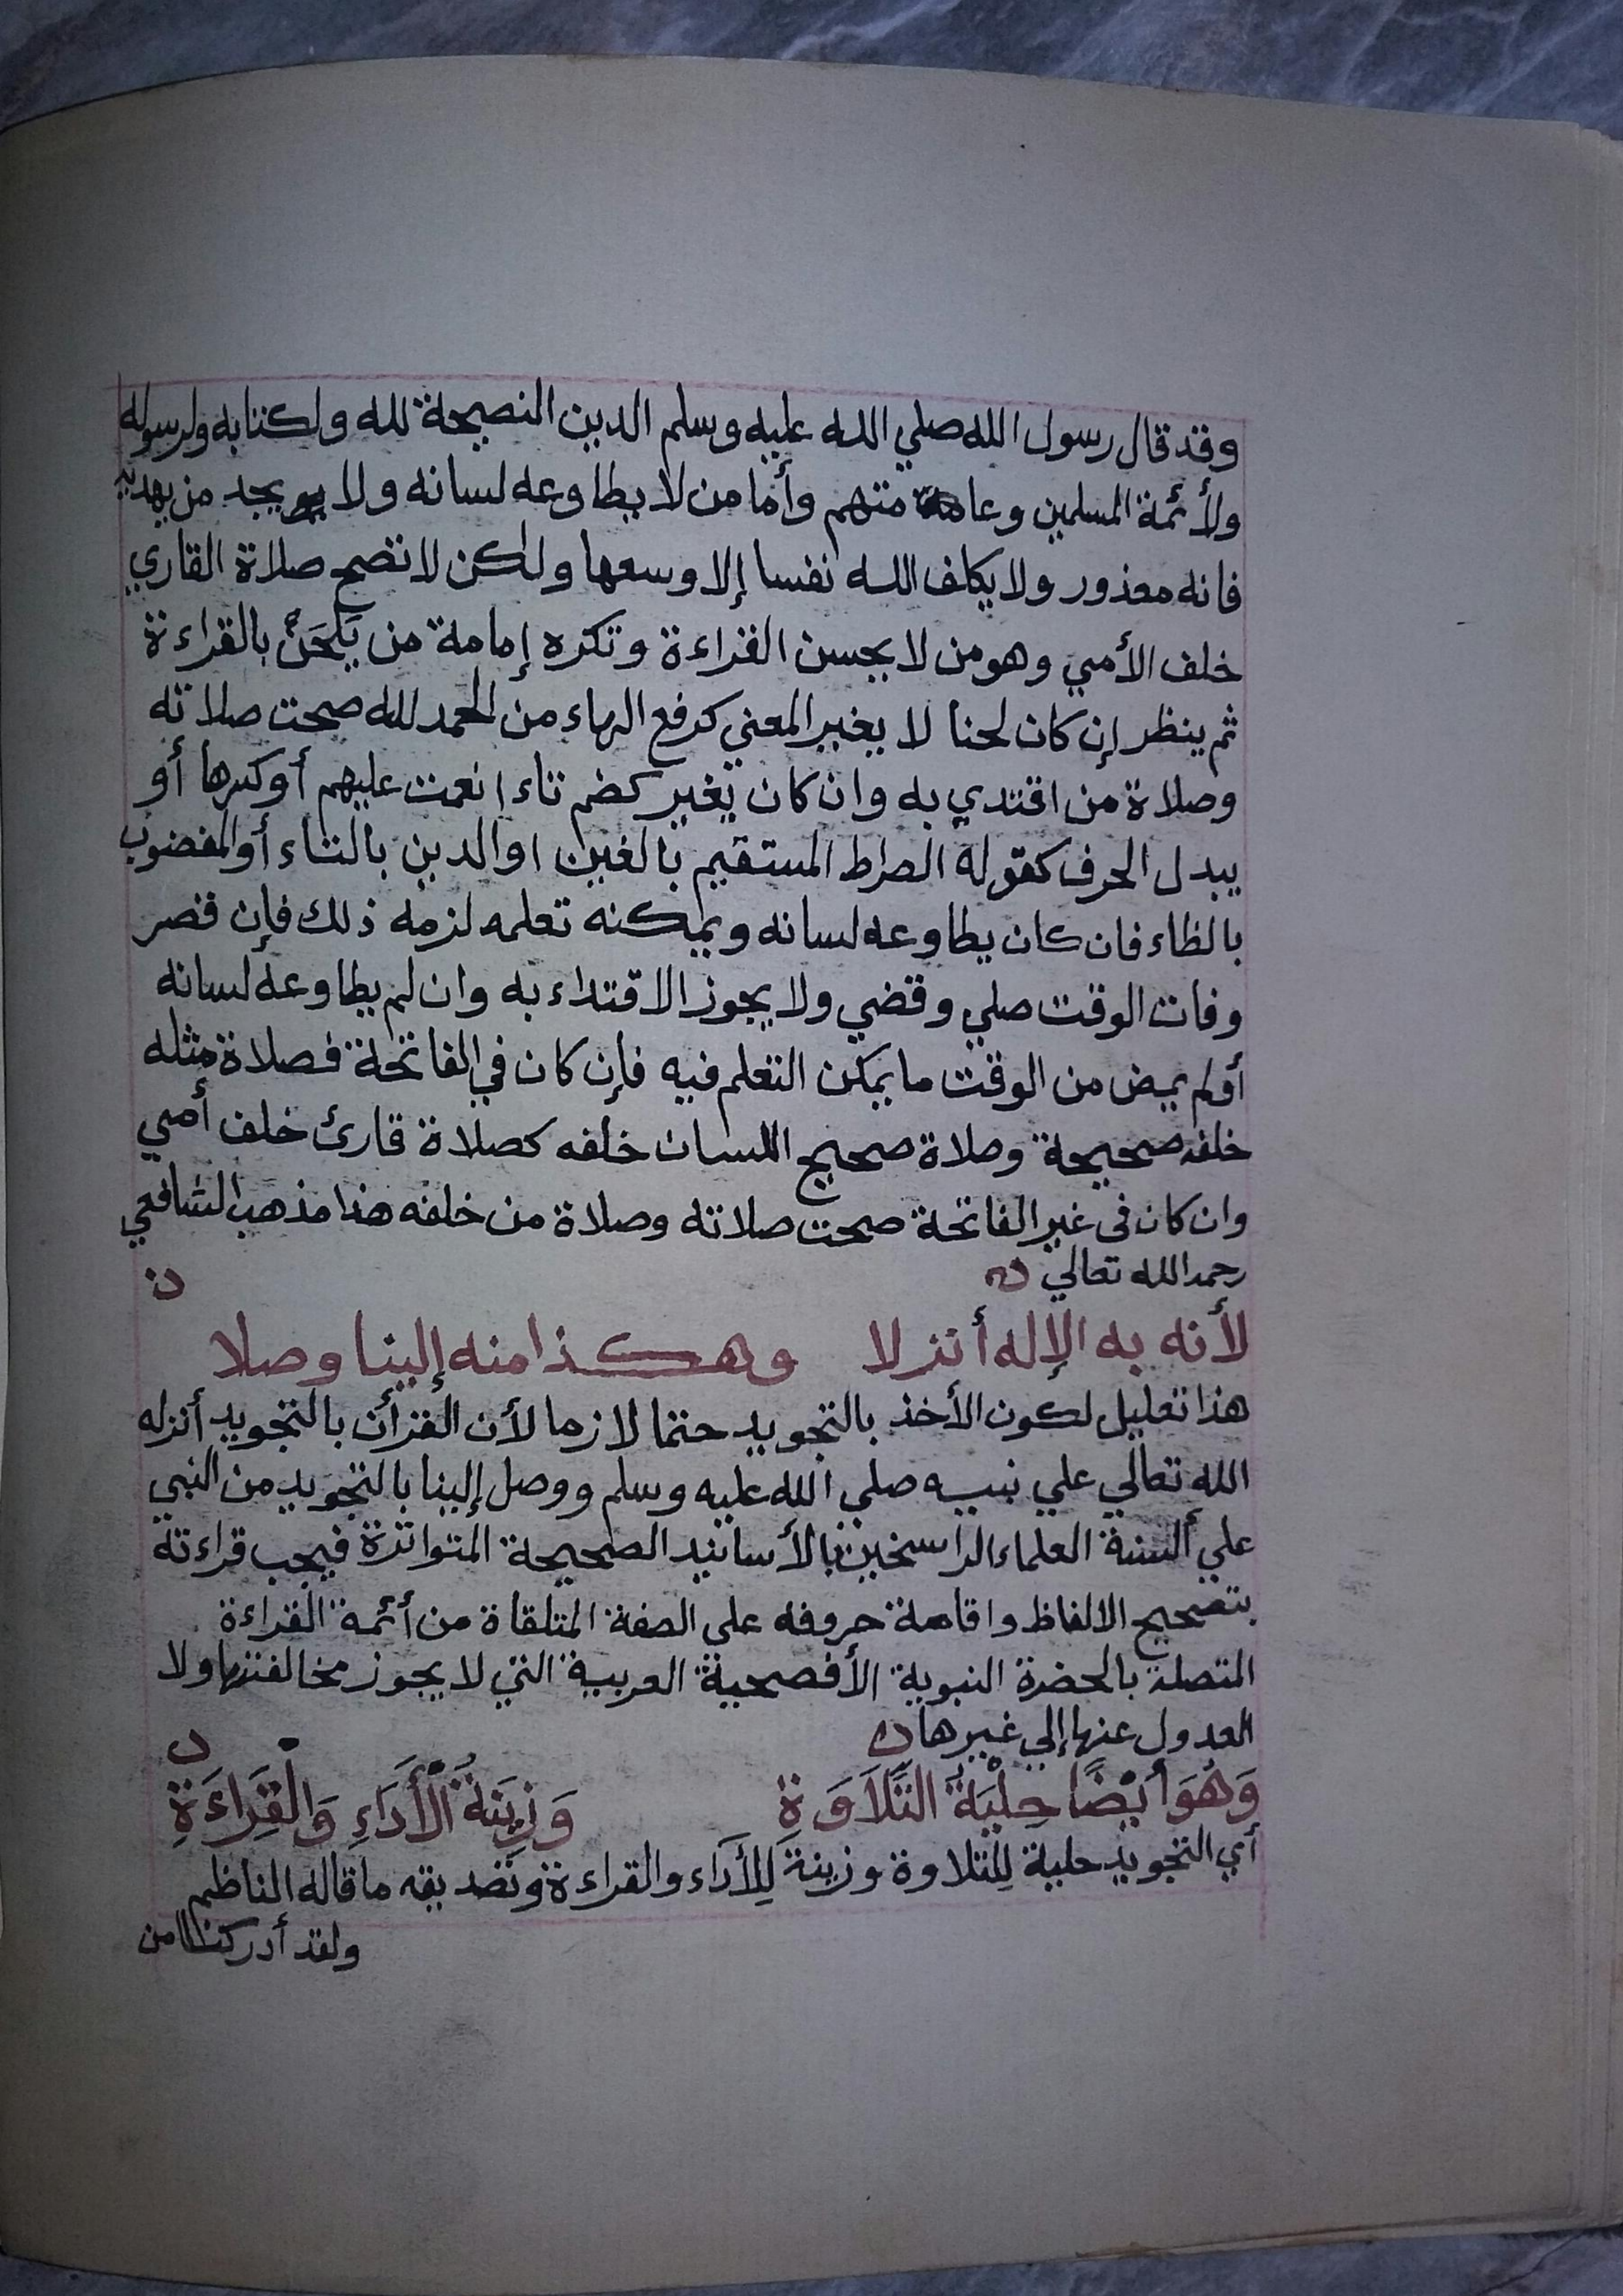 وقد قال رسول الله صلي الله عليه وسلم الدين النصيحة لله ولكتابه ولرسوله
ولأئمة المسلمين وعامتهم وأما من لا يطاوعه لسانه ولا يجد من يهديه
فانه معذور ولا يكلف الله نفسا إلا وسعها ولكن لا تصح صلاة القاري
خلف الأمي وهو من لا يحسن القراءة وتكره إمامة من يَلحَنُ بالقراءة
ثم ينظر إن كان لحنا لا يغير المعني كرفع الهاء من الحمد لله صحت صلاته
وصلاة من اقتدي به وان كان يغير كضم تاء انعمت عليهم أو كسرها أو
يبدل الحرف كقوله الصراط المستقيم بالغين او الدين بالتاء أو المغضوب
بالظاء فان كان يطاوعه لسانه ويمكنه تعلمه لزمه ذلك فإن قصر
وفات الوقت صلي وقضي ولا يجوز الاقتداء به وان لم يطاوعه لسانه
أو لم يمض من الوقت ما يمكن التعلم فيه فإن كان في الفاتحة فصلاة مثله
خلفه صحيحة وصلاة صحيح اللسان خلفه كصلاة قارئ خلف أمي
وان كان فى غير الفاتحة صحت صلاته وصلاة من خلفه هذا مذهب الشافعي
رحمه الله تعالي
لأنه به الإله أنزلا وهكذا منه إلينا وصلا
هذا تعليل لكون الأخذ بالتجويد حتما لازما لأن القرأن بالتجويد أنزله
الله تعالي علي نبيه صلي الله عليه وسلم ووصل إلينا بالتجويد من النبي
علي ألسنة العلماء الراسخين بالأسانيد الصحيحة المتواترة فيجب قراءته
بتصحيح الالفاظ واقامة حروفه على الصفة المتلقاة من أئمة القراءة
المتصلة بالحضرة النبوية الأفصحية العربية التي لا يجوز مخالفتها ولا
العدول عنها إلي غيرها
وَهُوَ أَيْضًا حِلْيَةُ التِّلَاوَةِ وَزِينَةُ الْأَدَاءِ وَالْقِرَاءَةِ
أي التجويد حلية لِلتلاوة وزينةَ لِلأداء والقراءة وتصديقه ما قاله الناظم
ولقد أدركنا من